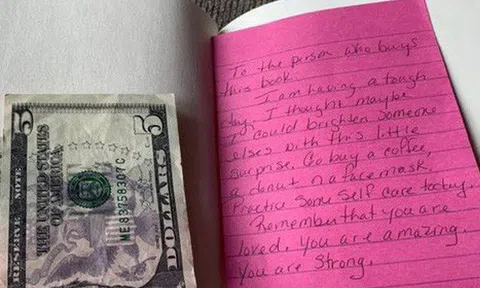 5
5
RESERVE NOTE
THE UNITED STATES
OF AMERICA
ME83758307C
DOLLARS
To the person who buys
this book.
I am having a tough
day. I thought maybe
I could brighten someone
elses with this little
surprise. Go buy a coffee,
a donut n a face mask.
Practice some self care today.
Remember that you are
loved. You are amazing.
You are Strong.